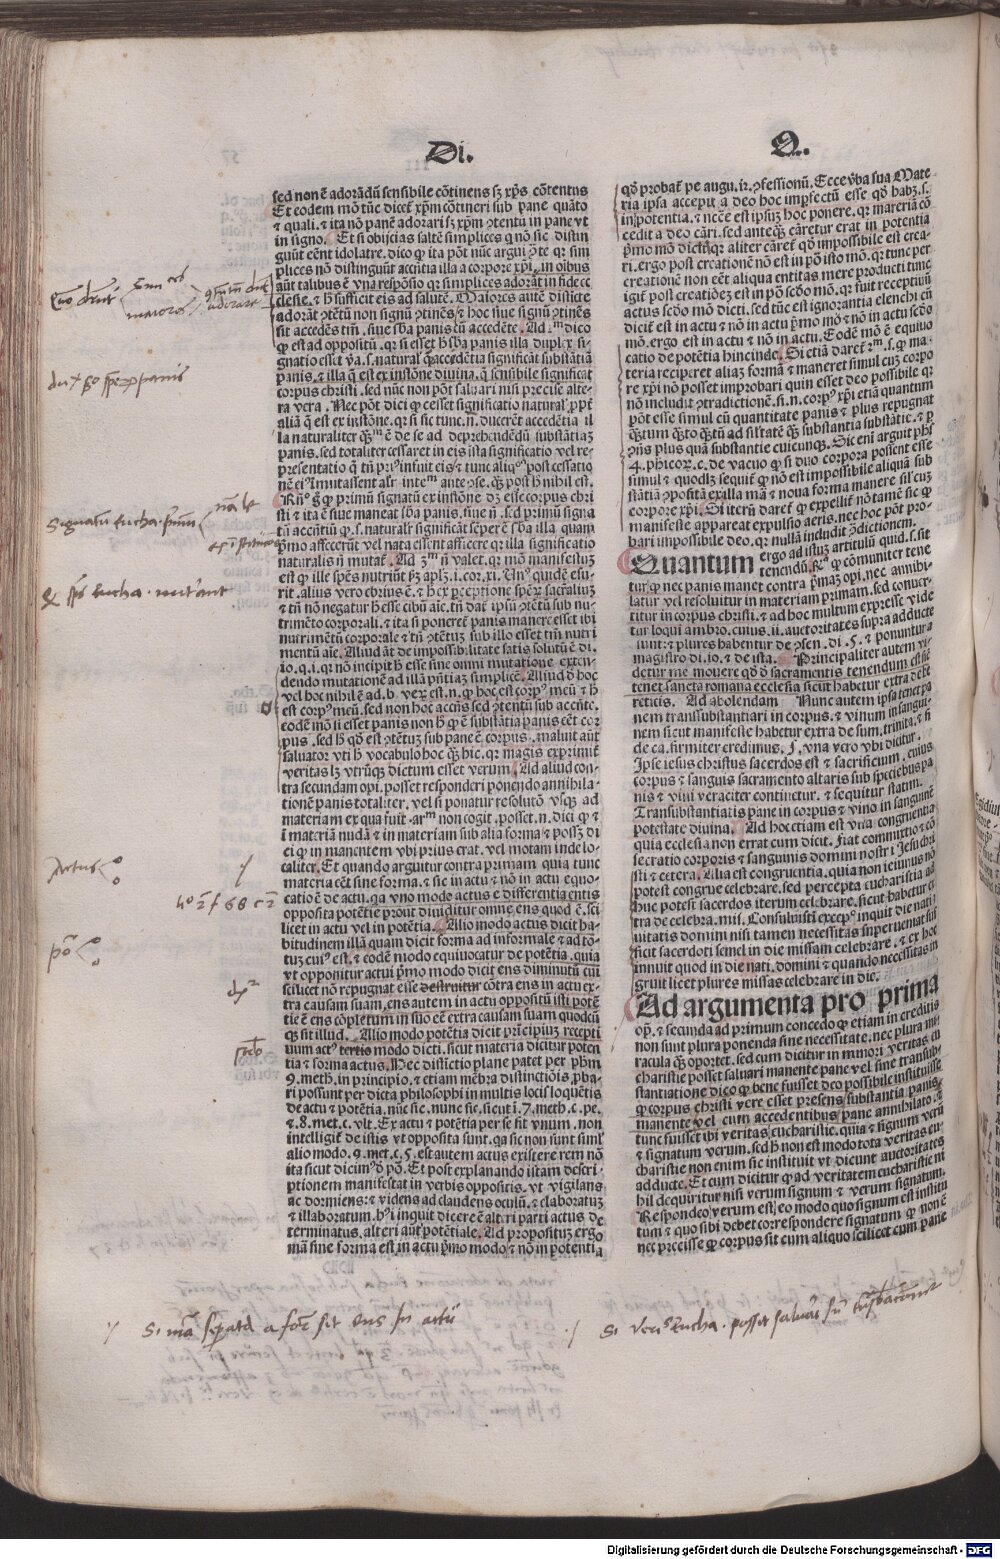 Di.
Q.
sed non ē adorādū sensibile cōtinens sꝫ xp̄s cōtentus
Et eodem mō tūc dicet̄ xp̄m cōtineri sub pane quāto
⁊ quali. ⁊ ita nō panē adorari sꝫ xp̄m ꝯtentū in pane vt
in signo. Et si obijcias saltē simplices q̄ nō sic distin
guūt eēnt idolatre. dico ꝙ ita pōt nūc argui ꝯ̄te qꝛ sim
plices nō distinguūt accn̄tia illa a corpore xp̄i. in oībus
aūt talibus ē vna respōsio qꝛ simplices adorāt in fide ec
clesie. ⁊ h̄ sufficit eis ad salutē. Maiores autē distīcte
adorāt ꝯtētū non signū ꝯtinēs ⁊ hoc siue signū ꝯtinēs
sit accedēs tm̄. siue sb̄a panis cū accedēte. Ad 2m dico
ꝙ est ad oppositū. qꝛ si esset h̄ sb̄a panis illa duplex si-
gnatio esset v̄a. s. natural̓ qua accedētia significāt substātiā
panis. ⁊ illa q̄ est ex instōne diuina. q̄ sensibile significat
corpus christi. sed nūc non pōt saluari nisi precise alte-
ra vera. Nec pōt dici ꝙ eēsset significatio natural̓ ꝓpt̄
aliā q̄ est ex instōne. qꝛ si sic tunc. n. ducerēt accedētia il
la naturaliter q̄ꝫm ē de se ad deprehendēdū substātiaꝫ
panis. sed totaliter cessaret in eis ista significatio vel re-
presentatio q̄ tn̄ priꝰ infuit eis ⁊ tunc aliqꝰ post cessatio
nē eiꝰ imutassent alr̄ intem ante ꝯse. q̄ꝫ post h̄ nihil est.
Rn̄o g̊ ꝙ primū signatū ex instōne dꝫ esse corpus chri
sti ⁊ ita ē siue maneat sb̄a panis. siue n̄. sed primū signa
tū accn̄tiū ꝙ. s. natural̓r significāt sēper ē sb̄a illa quam
p̄mo affecerūt vel nata essent afficere qꝛ illa significatio
naturalis n̄ mutat̄. Ad 3m n̄ valet. qꝛ mō manifestuꝫ
est ꝙ ille spēs nutriūt sꝫ apl̄ꝫ. i. cor. xi. Unꝰ quidē esu-
rit. alius vero ebrius ē. ⁊ h̄ ex ꝑceptione spēꝝ sacraliuꝫ
⁊ tn̄ nō negatur h̄ esse cibū aīe. tn̄ dat̄ ipsū ꝯtētū sub nu-
trimēto corporali. ⁊ ita si poneret̄ panis manere esset ibi
nutrimētū corporale ⁊ tn̄ ꝯtētus sub illo esset tm̄ nutri
mentū aīe. Aliud aūt de impossibilitate satis solutū ē di.
io. q. i. qꝛ nō incipit h̄ esse sine omni mutatione exten-
dendo mutationē ad illā pn̄tiaꝫ simplicē. Aliud ð hoc
vel hoc nihil ē ad. b. vex est. n. ꝙ hoc est corpꝰ meū ⁊ h̄
est corpꝰ meū. sed non hoc accn̄s sed ꝯtentū sub accn̄te.
eodē mō si esset panis non h̄ ꝙ ē substātia panis eēt cor
pus. sed h̄ qð est ꝯtētuꝫ sub pane ē corpus. maluit aūt
saluator vti h̄ vocabulo hoc q̄ꝫ hic. qꝛ magis exprimit
veritas lꝫ vtrūqꝫ dictum esset verum. Ad aliud con-
tra secundam opi. posset responderi ponendo annihila-
tionē panis totaliter. vel si ponatur resolutō vsqꝫ ad
materiam ex qua fuit. arm non cogit. posset. n. dici ꝙ ē
ī materiā nudā ⁊ in materiam sub alia forma ⁊ possꝫ di
ci ꝙ in manentem vbi prius erat. vel motam inde lo-
caliter. Et quando arguitur contra primam quia tunc
materia eēt sine forma. ⁊ sic in actu ⁊ nō in actu equo-
catio ē de actu. qa vno modo actus ē differentia entis
opposita potētie prout diuiditur omne ens quod ē. sci
licet in actu vel in potētia. Alio modo actus dicit ha-
bitudinem illā quam dicit forma ad informale ⁊ ad to-
tuꝫ cuiꝰ est. ⁊ eodē modo equiuocatur de potētia. quia
vt opponitur actui p̄mo modo dicit ens diminutū cui
scilicet nō repugnat esse destruitur cōtra ens in actu ex-
tra causam suam. ens autem in actu oppositū isti potē
tie ē ens cōpletum in suo eē extra causam suam quodcū
qꝫ sit illud. Alio modo potētia dicit prīcipiuꝫ recepti
uum actꝰ tertio modo dicti. sicut materia dicitur poten
tia ⁊ forma actus. Hec distīctio plane patet per ph̄m
9. meth. in principio. ⁊ etiam mēbra distinctiōis ꝓba-
ri possunt per dicta philosophi in multis locis loquētis
de actu ⁊ potētia. nūc sic. nunc sic. sicut ī. 7. meth. c. pe.
⁊ 8. met. c. vlt. Ex actu ⁊ potētia per se fit vnum. non
intelligit̄ de istis vt opposita sunt. qa sic non sunt siml̓
alio modo. 9. met. c. 5. est autem actus existere rem nō
ita sicut dicimꝰ ð pō. Et post explanando istam descri-
ptionem manifestat in verbis oppositis. vt vigilans
ac dormiens: ⁊ videns ad claudens oculū. ⁊ elaboratuꝫ
⁊ illaboratum. hꝰi inquit dicere ē alt̄ri parti actus de
terminatus. alteri aūt potētiale. Ad propositū ergo
mā sine forma est in actu p̄mo modo ⁊ nō in potentia
qð probat̄ pe augu. 12. ꝯfessionū. Ecce v̄ba sua Mate-
ria ipsa accepit a deo hoc imꝑfectū esse qð habꝫ. s.
in potentia. ⁊ necē est ipsuꝫ hoc ponere. qꝛ mareriā cō
cedit a deo cāri. sed anteq̄ꝫ cāretur erat in potentia
p̄mo mō dicto qꝛ aliter cāret̄ qð impossibile est crea-
ri. ergo post creationē nō est in pō isto mō. qꝛ tunc per
creationē non eēt aliqua entitas mere producti tunc
igit̄ post creatiōeꝫ est in pō secðo mō. qꝛ fuit receptiuū
actus secðo mō dicti. sed tūc est ignorantia elenchi cū
dicit̄ est in actu ⁊ nō in actu p̄mo mō ⁊ nō in actu secðo
mō. ergo est in actu ⁊ nō in actu. Eodē mō ē equiuo
catio de potētia hincinde. Si etiā daret̄ 2m. s. ꝙ ma-
teria reciperet aliaꝫ formā ⁊ maneret simul cuꝫ corpo
re xp̄i nō posset improbari quin esset deo possibile qꝛ
nō includit ꝯtradictionē. si. n. corpꝰ xp̄i etiā quantum
pōt esse simul cū quantitate panis ⁊ plus repugnat
q̄ꝫtum q̄ꝫto q̄ꝫtū ad sil̓tatē q̄ꝫ substantia substātie. ⁊ ꝑ
ꝯn̄s plus quā substantie cuicunqꝫ. Sic enī arguit ph̄s
4. phicoꝝ. c. de vacuo ꝙ si duo corpora possent esse
simul ⁊ quodlꝫ sequit̄ ꝙ nō est impossibile aliquā sub
stātiā ꝯpositā ex illa mā ⁊ noua forma manere sil̓ cuꝫ
corpore xp̄i. Si iterū daret̄ ꝙ expellit̄ nō tamē sic ꝙ
manifeste appareat expulsio aeris. nec hoc pōt pro-
bari impossibile deo. qꝛ nullā includit ꝯdictionem.
Quantum ergo ad istuꝫ articulū quid. s. sit
tenendū. Rn̄o ꝙ cōmuniter tene
tur ꝙ nec panis manet contra p̄maꝫ opi. nec annihi-
latur vel resoluitur in materiam primam. sed conuer-
titur in corpus christi. ⁊ ad hoc multum expresse vide
tur loqui ambro. cuius. ii. auctoritates supra adducte
sunt: ⁊ plures habentur de ꝯsen. di. 5. ⁊ ponuntur a
magistro di. io. ⁊ de ista. Principaliter autem vi-
detur me mouere qð ð sacramentis tenendum est sic̄
tenet sancta romana ecclesia sicut habetur extra de he
reticis. Ad abolendam Nunc autem ipsa tenet pa
nem transsubstantiari in corpus. ⁊ vinum in sangui-
nem sicut manifeste habetur extra de sum. trinita. ⁊ fi
de ca. firmiter credimus. §. vna vero vbi dicitur.
Ipse iesus christus sacerdos est ⁊ sacrificium. cuius
corpus ⁊ sanguis sacramento altaris sub speciebus pa
nis ⁊ vini veraciter continetur. ⁊ sequitur statim.
Transubstantiatis pane in corpus ⁊ vino in sanguinē
potestate diuina. Ad hoc etiam est vna congruentia
quia ecclesia non errat cum dicit. Fiat commixtio ⁊ cō
secratio corporis ⁊ sanguinis domini nostri Jesu chri
sti ⁊ cetera. Alia est congruentia. quia non ieiunus nō
potest congrue celebrare. sed percepta eucharistia ad
huc potest sacerdos iterum celebrare. sicut habetur ex
tra de celebra. mis. Consuluisti excepꝰ inquit die nati
uitatis domini nisi tamen necessitas superueniat suf
ficit sacerdoti semel in die missam celebrare. ⁊ ex hoc
innuit quod in die nati. domini ⁊ quando necessitas in
gruit licet plures missas celebrare in die.
Ad argumenta pro prima
op̄. ⁊ secunda ad primum concedo ꝙ etiam in creditis
non sunt plura ponenda sine necessitate. nec plura mi-
racula q̄ꝫ oportet. sed cum dicitur in minori veritas eu
charistie posset saluari manente pane vel sine transub-
stantiatione dico ꝙ bene fuisset deo possibile instituisse
ꝙ corpus christi vere esset presens substantia panis
manente vel cum accedentibus pane annihilato. ⁊
tunc fuisset ibi veritas eucharistie. quia ⁊ signum verū
⁊ signatum verum. sed h̄ non est modo tota veritas eu-
charistie non enim sic instituit vt dicunt auctoritates
adducte. Et cum dicitur ꝙ ad veritatem eucharistie ni
hil dequiritur nisi verum signum ⁊ verum signatum.
Respondeo verum est eo modo quo signum est institu
tū ⁊ quo sibi debet correspondere signatum ꝙ non ē
nec precisse ꝙ corpus sit cum aliquo scilicet cum pane
maiores
adorare
Signatū Eucha. primū
Eucha. nutriant
Actus
Si mā sꝑata a for̄ sit ens in actu
Si veritas Eucha. posset saluari
Digitalisierung gefördert durch die Deutsche Forschungsgemeinschaft - DFG